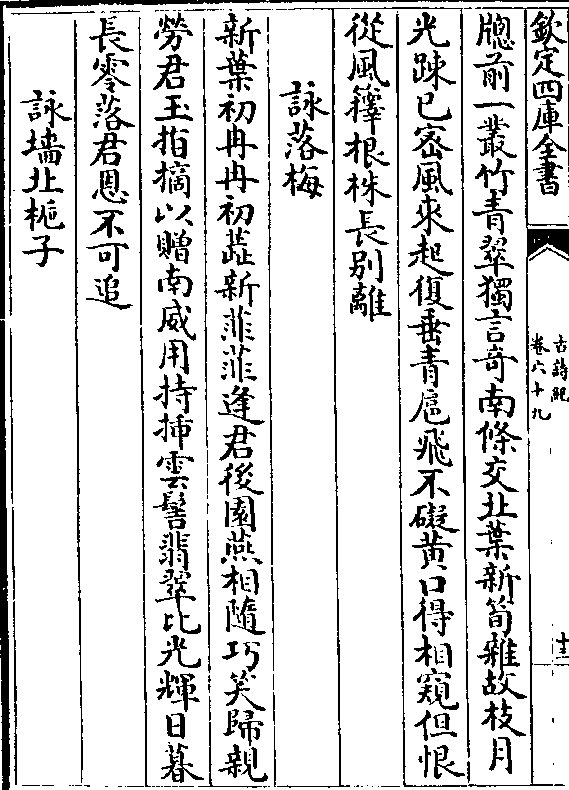 欽定四庫全書
古詩紀
卷六十九
十三
牎前一叢竹青翠獨言竒南條交北葉新筍雜故枝月
光踈已宻風來起復垂青扈飛不礙黄口得相窺但恨
從風籜根株長別離
詠落梅
新葉初冉冉初蘂新菲菲逢君後園燕相隨巧笑歸親
勞君玉指摘以贈南威用持揷雲髻翡翠比光輝日暮
長零落君恩不可追
詠墻北梔子